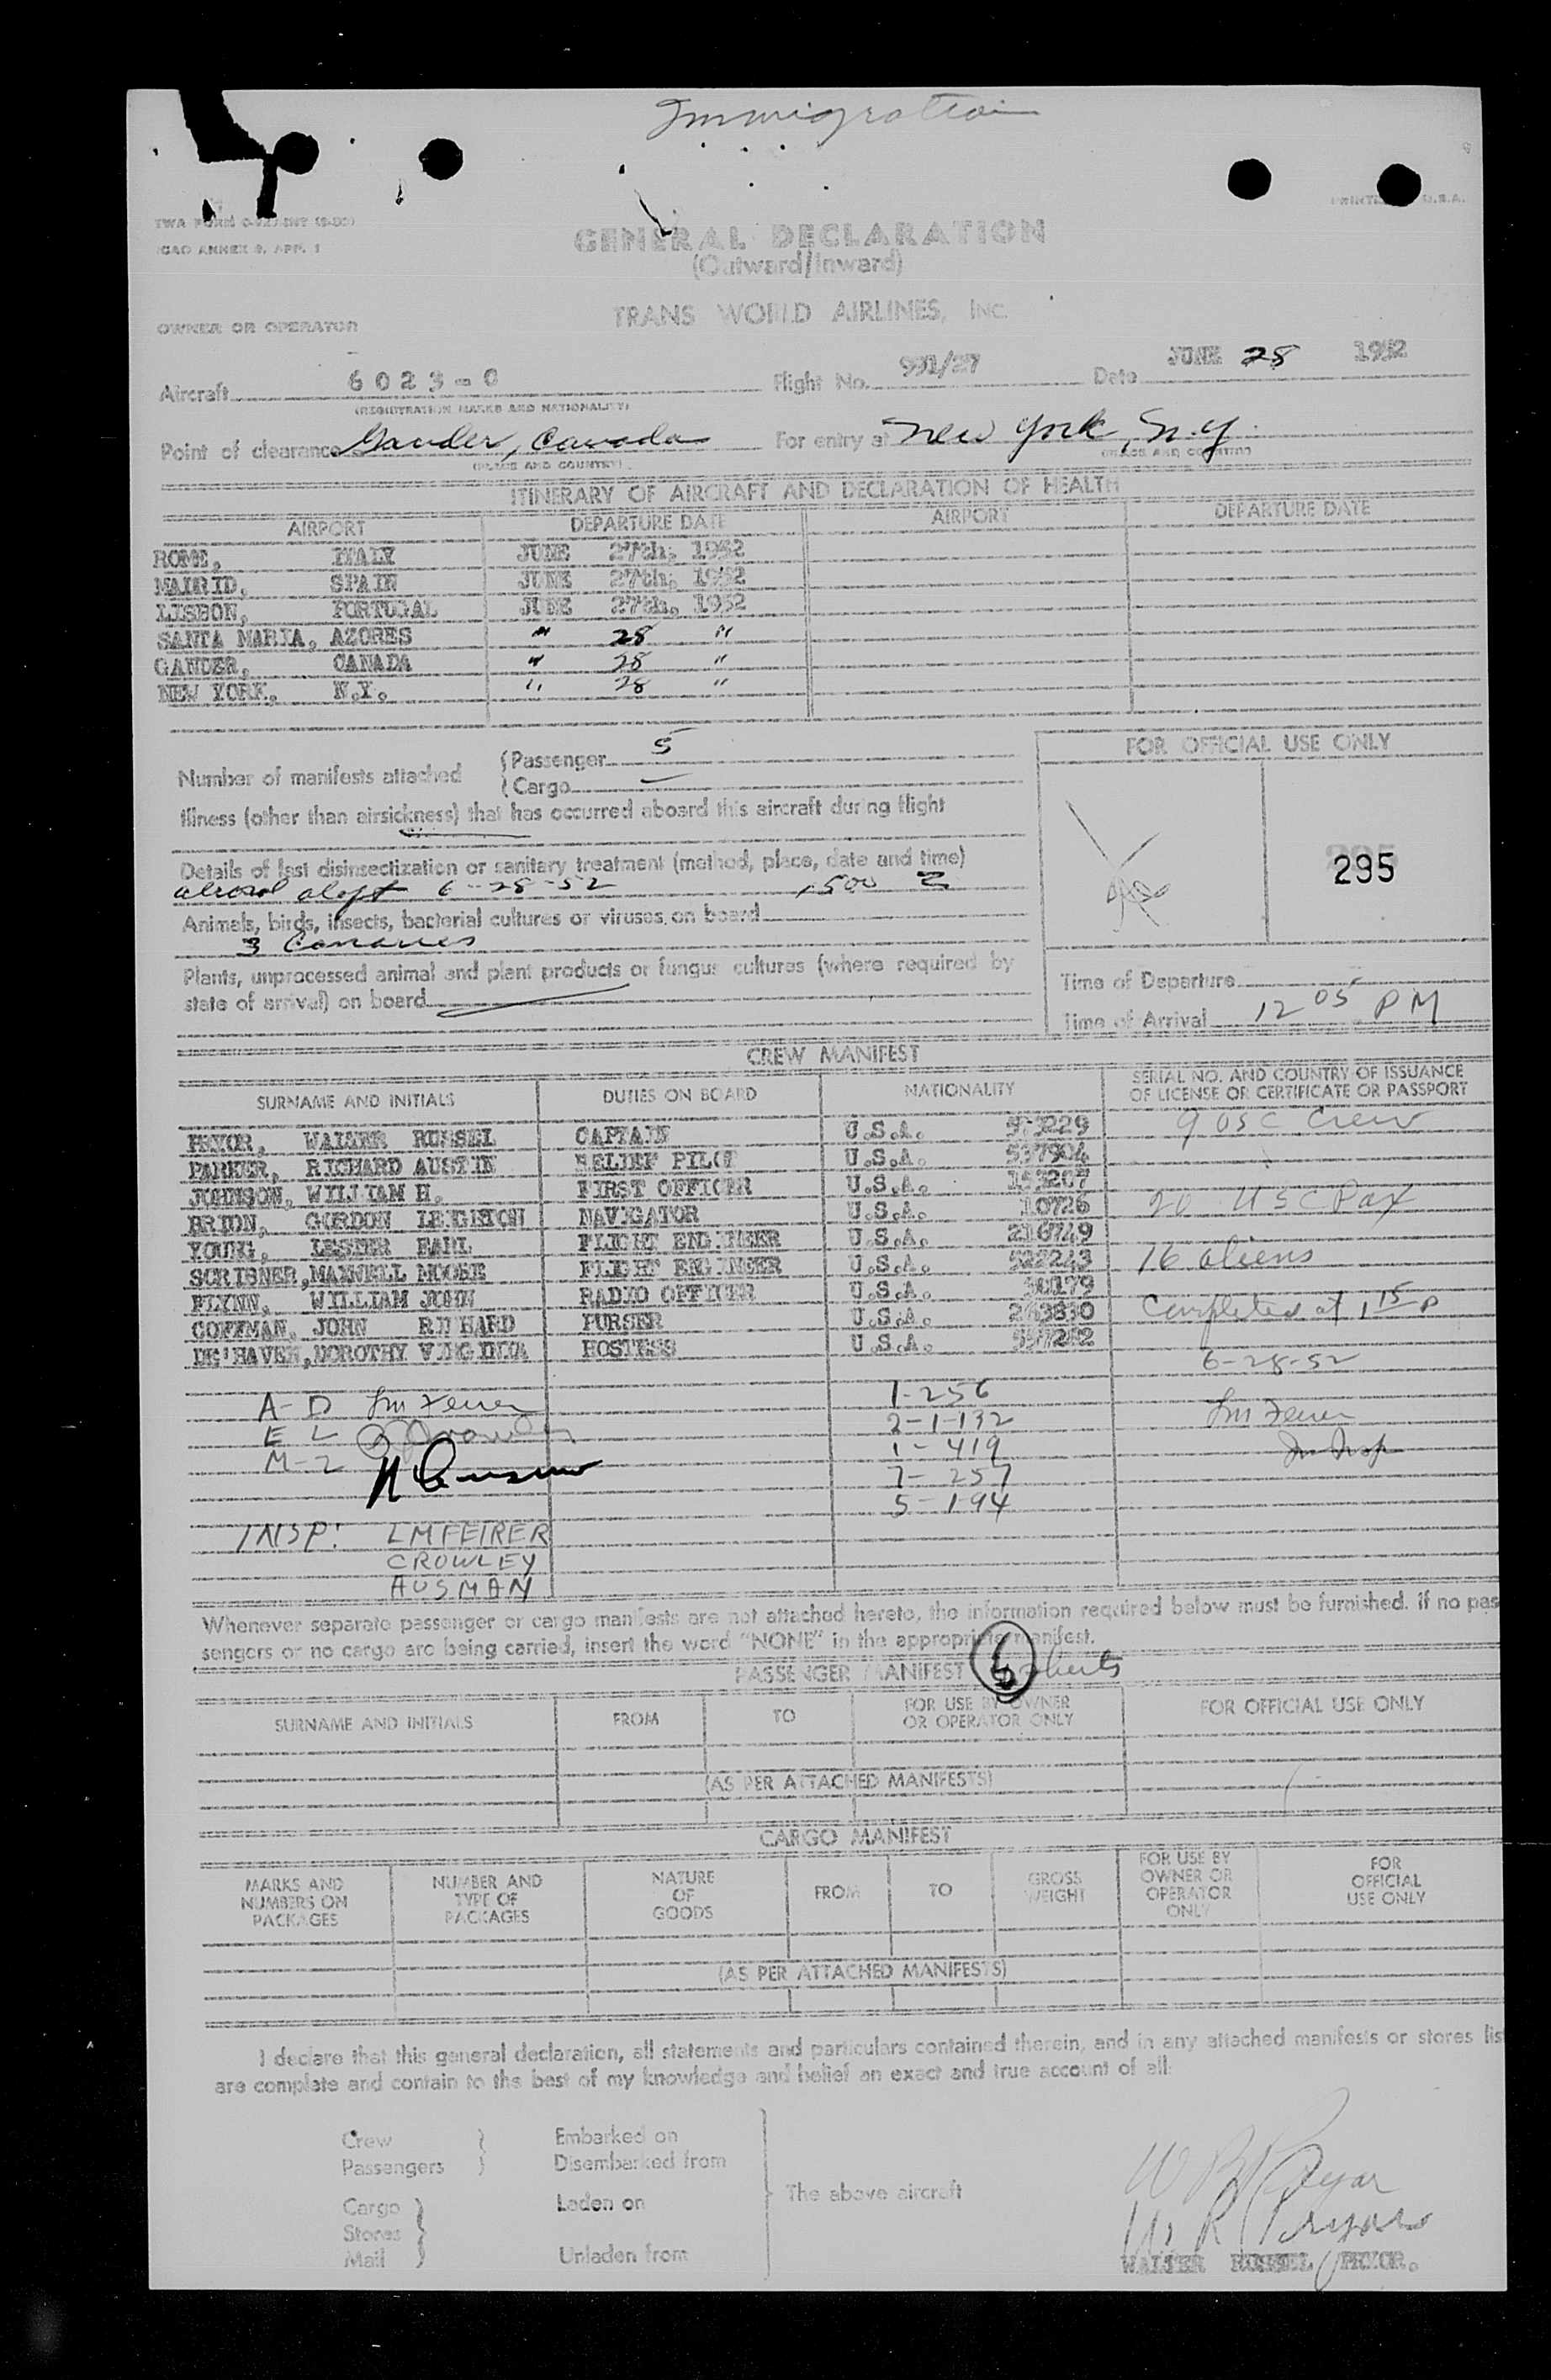 Immigration
PRINTED U.S.A.
ICAO ANNEX 9, APP. 1
GENERAL DECLARATION
(Outward/Inward)
TRANS WORLD AIRLINES, INC.
OWNER OR OPERATOR
Aircraft 6023-C Flight No. 991/27 Date JUNE 28 1952
(REGISTRATION MARKS AND NATIONALITY)
Point of clearance Gander, Canada For entry at New York, N.Y.
(PLACE AND COUNTRY) (PLACE AND COUNTRY)
ITINERARY OF AIRCRAFT AND DECLARATION OF HEALTH
AIRPORT DEPARTURE DATE AIRPORT DEPARTURE DATE
ROME, ITALY JUNE 27th, 1952
MADRID, SPAIN JUNE 27th, 1952
LISBON, PORTUGAL JUNE 27th, 1952
SANTA MARIA, AZORES " 28 "
GANDER, CANADA " 28 "
NEW YORK, N.Y. " 28 "
FOR OFFICIAL USE ONLY
Number of manifests attached (Passenger 5
(Cargo —
Illness (other than airsickness) that has occurred aboard this aircraft during flight
Details of last disinsectization or sanitary treatment (method, place, date and time)
aerosol aloft 6-28-52 1500 Z
295
Animals, birds, insects, bacterial cultures or viruses, on board
3 Canaries
Plants, unprocessed animal and plant products or fungus cultures (where required by
state of arrival) on board
Time of Departure
Time of Arrival 12 05 PM
CREW MANIFEST
SURNAME AND INITIALS DUTIES ON BOARD NATIONALITY SERIAL NO. AND COUNTRY OF ISSUANCE
OF LICENSE OR CERTIFICATE OR PASSPORT
PRYOR, WALTER RUSSEL CAPTAIN U.S.A. 9 USC Crew
PARKER, RICHARD AUSTIN RELIEF PILOT U.S.A. 537904
JOHNSON, WILLIAM H. FIRST OFFICER U.S.A. 153207
BRION, GORDON LEIGHTON NAVIGATOR U.S.A. 10726 20 USC Pax
YOUNG, LESTER EARL FLIGHT ENGINEER U.S.A. 216749
SCRIBNER, MAXWELL MOORE FLIGHT ENGINEER U.S.A. 16 aliens
FLYNN, WILLIAM JOHN RADIO OFFICER U.S.A.
COFFMAN, JOHN RICHARD PURSER U.S.A. 263830 Completed at 1 15 P
DE'HAVEN, DOROTHY VIRGINIA HOSTESS U.S.A.
6-28-52
A-D 1-256
E L 2-1-132
M-2 1-419
7-257
5-194
INSP: LMFEIRER
CROWLEY
AUSMAN
Whenever separate passenger or cargo manifests are not attached hereto, the information required below must be furnished. If no pas
sengers or no cargo are being carried, insert the word "NONE" in the appropriate manifest.
PASSENGER MANIFEST
SURNAME AND INITIALS FROM TO FOR USE BY OWNER
OR OPERATOR ONLY FOR OFFICIAL USE ONLY
(AS PER ATTACHED MANIFESTS)
CARGO MANIFEST
MARKS AND
NUMBERS ON
PACKAGES NUMBER AND
TYPE OF
PACKAGES NATURE
OF
GOODS FROM TO GROSS
WEIGHT FOR USE BY
OWNER OR
OPERATOR
ONLY FOR
OFFICIAL
USE ONLY
(AS PER ATTACHED MANIFESTS)
I declare that this general declaration, all statements and particulars contained therein, and in any attached manifests or stores lis
are complete and contain to the best of my knowledge and belief an exact and true account of all:
Crew Embarked on
Passengers Disembarked from
The above aircraft
Cargo Laden on
Stores
Mail Unladen from
W R Pryor
W. R. Pryor
WALTER RUSSEL PRYOR.